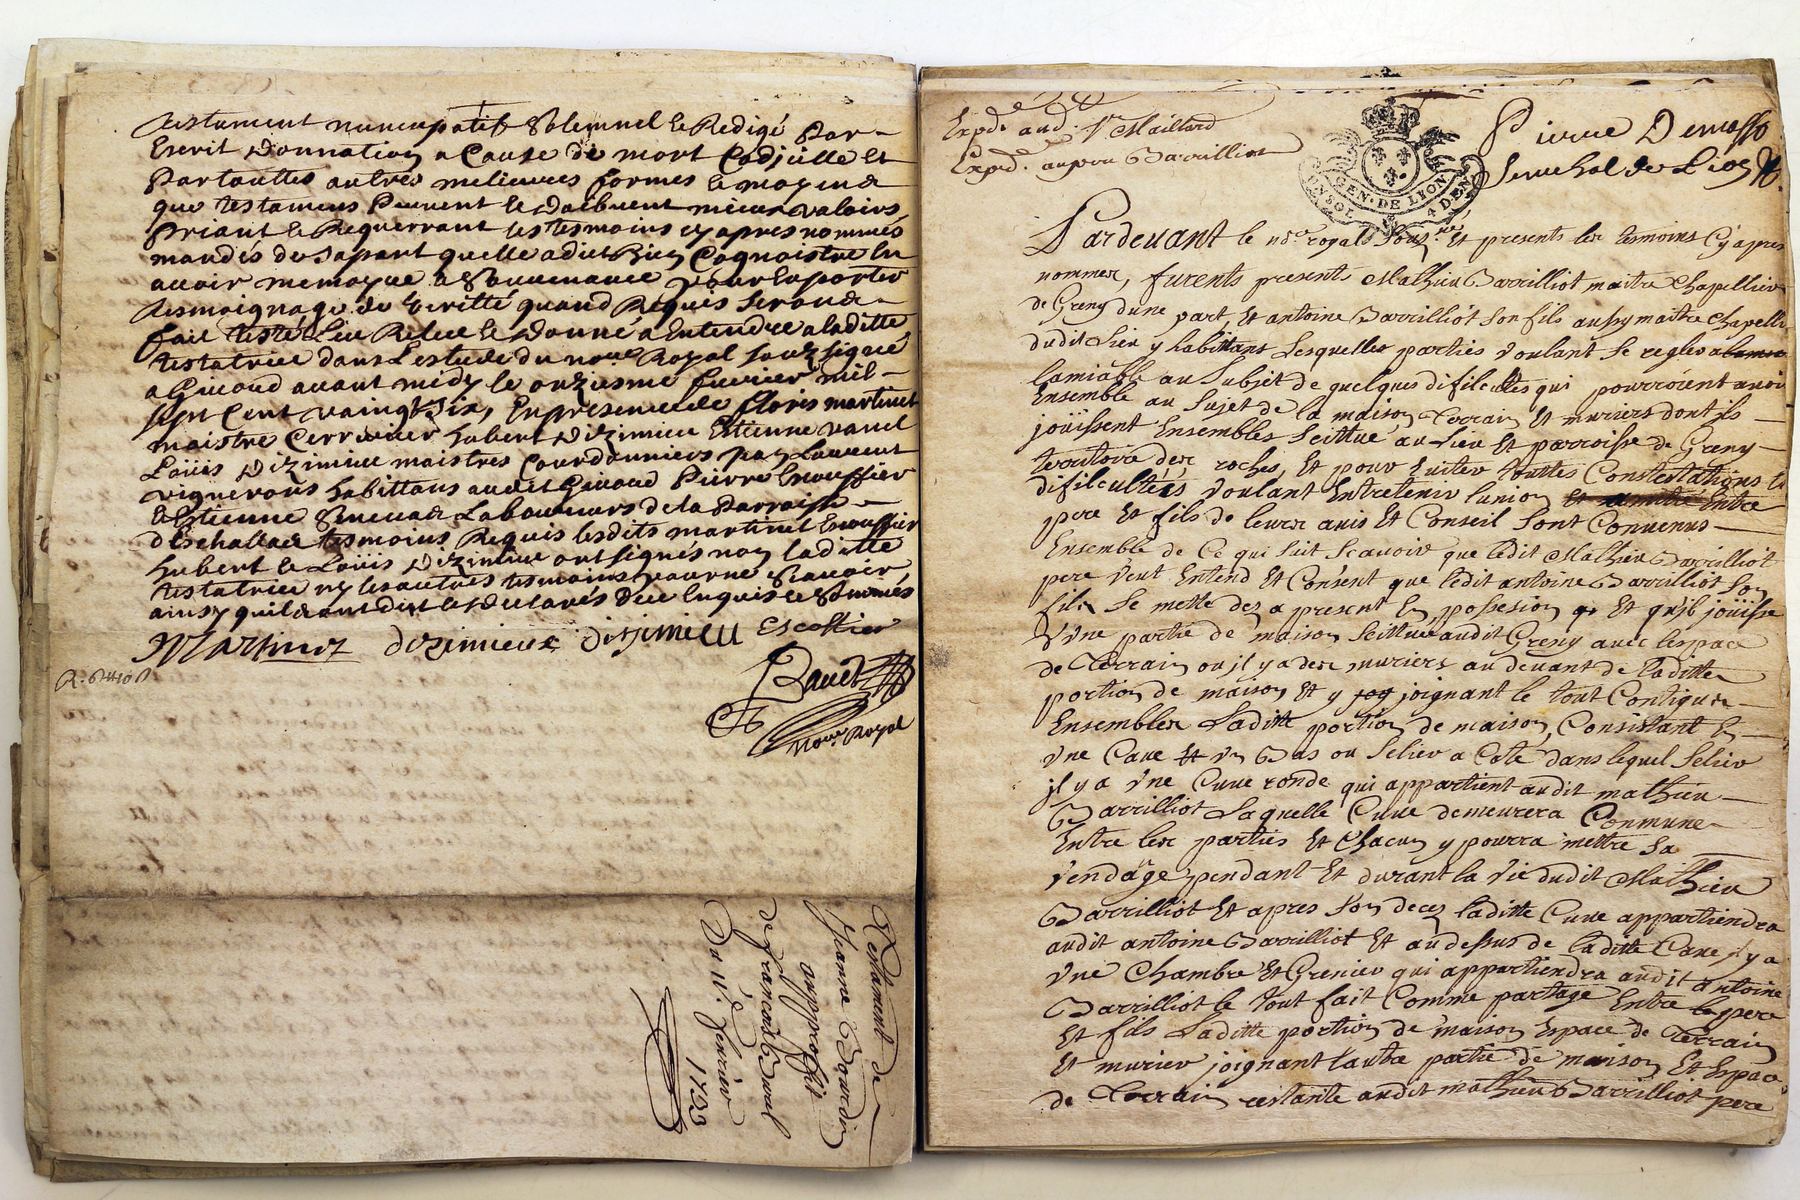 testament nuncupatif Solemnel le Redigé Par
Escrit donnation a Cause de mort Codjcille et
Partouttes autres melieures formes le moyend
que testamens Peuvent le doibvent mieux valoirs
Priant le Requerrant les tesmoins cy apres nommés
mandés de sapart quelle a dict Bien Cognoistre En
avoir memoyre & Souvenance pour En porter
tesmoignage de veritté quand Requis serond
fait testé Leu Releu le donné a Entendre a laditte
testatrice dans L'estude du nore Royal soubzsigné
a Givord avant midy le onziesme feuvrier mil
sept Cent vaingt six, En presence de floris martinet
maistre Cerrurier hubert dizimieu Estienne
Loüis dizimieu maistres Cordonniers Laurent
vignerons habittans audit Givord Pierre Escoffier
& Estienne Laboureurs de la Parroisse
d'Eschallad tesmoins Requis lesdits martinet Escoffier
hubert le Loüis dizimieu ont signés non laditte
testatrice ny les autres tesmoins pour ne Scavoir
ainsy quils ont dit le declarés de ce Enquis le Sommés
Martinez dozimieux dizimieu escoffier
Bauet
Nore Royal
Testament de
Jeanne Bourdin
au proffit
de françois Duval
Du 11e. fevrier
1733
Expd. aud. Sr Maillard
Expd. au pere Barrilliot
GEN. DE LION
UN SOL 4 DEN
Pierre Demasso
Senechal de Lion
Pardevant le nore royal Soussné Et presents les temoins Cy apres
nommes, furents presents Mathieu Barrilliot maitre Chapellier
de Greny dune part, Et antoine Barrilliot son fils aussy maitre Chapellier
dudit Lieu y habittans Lesquelles parties voulant se regler
lamiable au Subjet de quelques dificultes qui pourroient avoir
Ensemble au Sujet de la maison Terrain Et muriers dont ils
joüissent Ensembles Scittué au Lieu Et parroisse de Greny
territoire des roches, Et pour Eviter touttes Constestations Et
dificultés voulant Entretenir lunion Entre
pere Et fils de leurs avis Et Conseil Sont Convenus
Ensemble de Ce qui Suit Scavoir que ledit Mathieu Barrilliot
pere veut Entend Et Consent que ledit antoine Barrilliot Son
fils Se mette dez a present En possesion Et qu'jl joüisse
d'une partie de maison Scittuée audit Greny avec lespace
de Terrain ou jl y a des muriers au devant de laditte
portion de maison Et y joignant le tout Contiguer
Ensembles Laditte portion de maison, Consistant En
vne Cave Et vn Bas ou Selier a Coté dans lequel Selier
jl y a vne Cuve ronde qui appartient audit mathieu
Barrilliot Laquelle Cuve demeurera Conmune
Entre les parties Et Chacun y pourra mettre Sa
vendage pendant Et durant la vie dudit Mathieu
Barrilliot Et apres Son deces laditte Cuve appartiendra
audit antoine Barrilliot Et au dessus de laditte Cave jl y a
vne Chambre Et Grenier qui appartiendra audit antoine
Barrilliot le tout fait Comme partage Entre le pere
Et fils Laditte portion de maison Espace de Terrain
Et murier joignant lautre partie de maison Et Espace
de Terrain restante audit mathieu Barrilliot pere